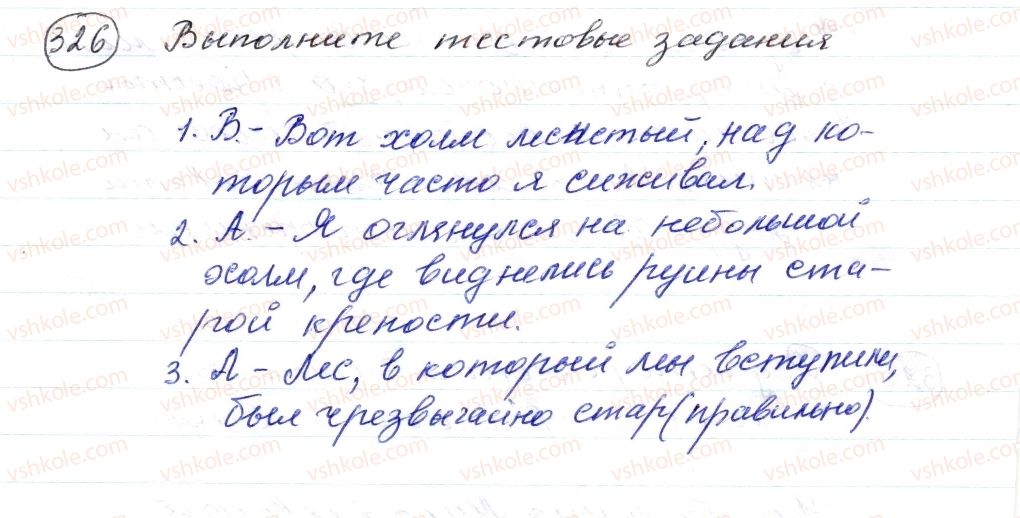 326 Выполните тестовые задания
1. В. - Вот холм лесистый, над ко-
торым часто я сиживал.
2. А. - Я оглянулся на небольшой
холм, где виднелись руины ста-
рой крепости.
3. А - Лес, в который мы вступили,
был чрезвычайно стар (правильно).
vshkole.com